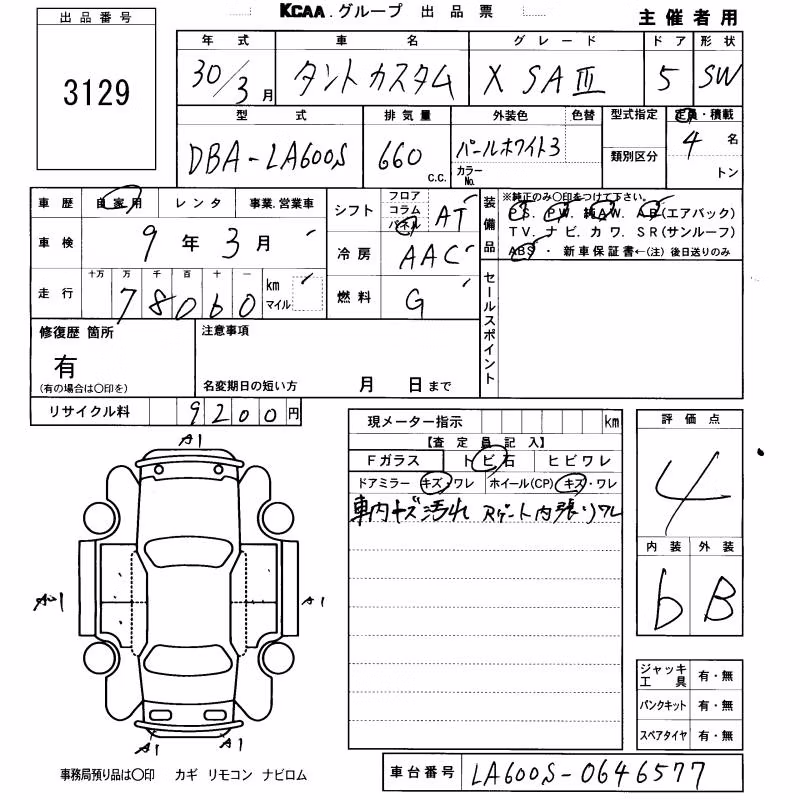 KCAA.グループ 出品票
主催者用
出品番号
3129
年式 車名 グレード ドア 形状
30/3月 タントカスタム X SAⅢ 5 SW
型式 排気量 外装色 色替 型式指定 定員・積載
DBA-LA600S 660 c.c. パールホワイト3 カラーNo. 類別区分 4 名 トン
車歴 自家用 レンタ 事業.営業車
車検 9年3月
走行 十万 万 千 百 十 一
78060 km マイル
シフト フロア コラム パネル AT
冷房 AAC
燃料 G
装備品
※純正のみ○印をつけて下さい。
PS. PW. 純AW. AB(エアバック)
TV. ナビ. カワ. SR(サンルーフ)
ABS ・ 新車保証書←(注) 後日送りのみ
セールスポイント
修復歴 箇所
有
(有の場合は○印を)
注意事項
名変期日の短い方 月 日まで
リサイクル料 9200円
現メーター指示 km
【査定員記入】
Fガラス トビ石 ヒビワレ
ドアミラー キズ・ワレ ホイール(CP) キズ・ワレ
車内キズ汚れ Rゲート内張りワレ
評価点
4
内装 外装
b B
A1
A1
A1
A1
ジャッキ工具 有・無
パンクキット 有・無
スペアタイヤ 有・無
事務局預り品は○印 カギ リモコン ナビロム
車台番号 LA600S-0646577